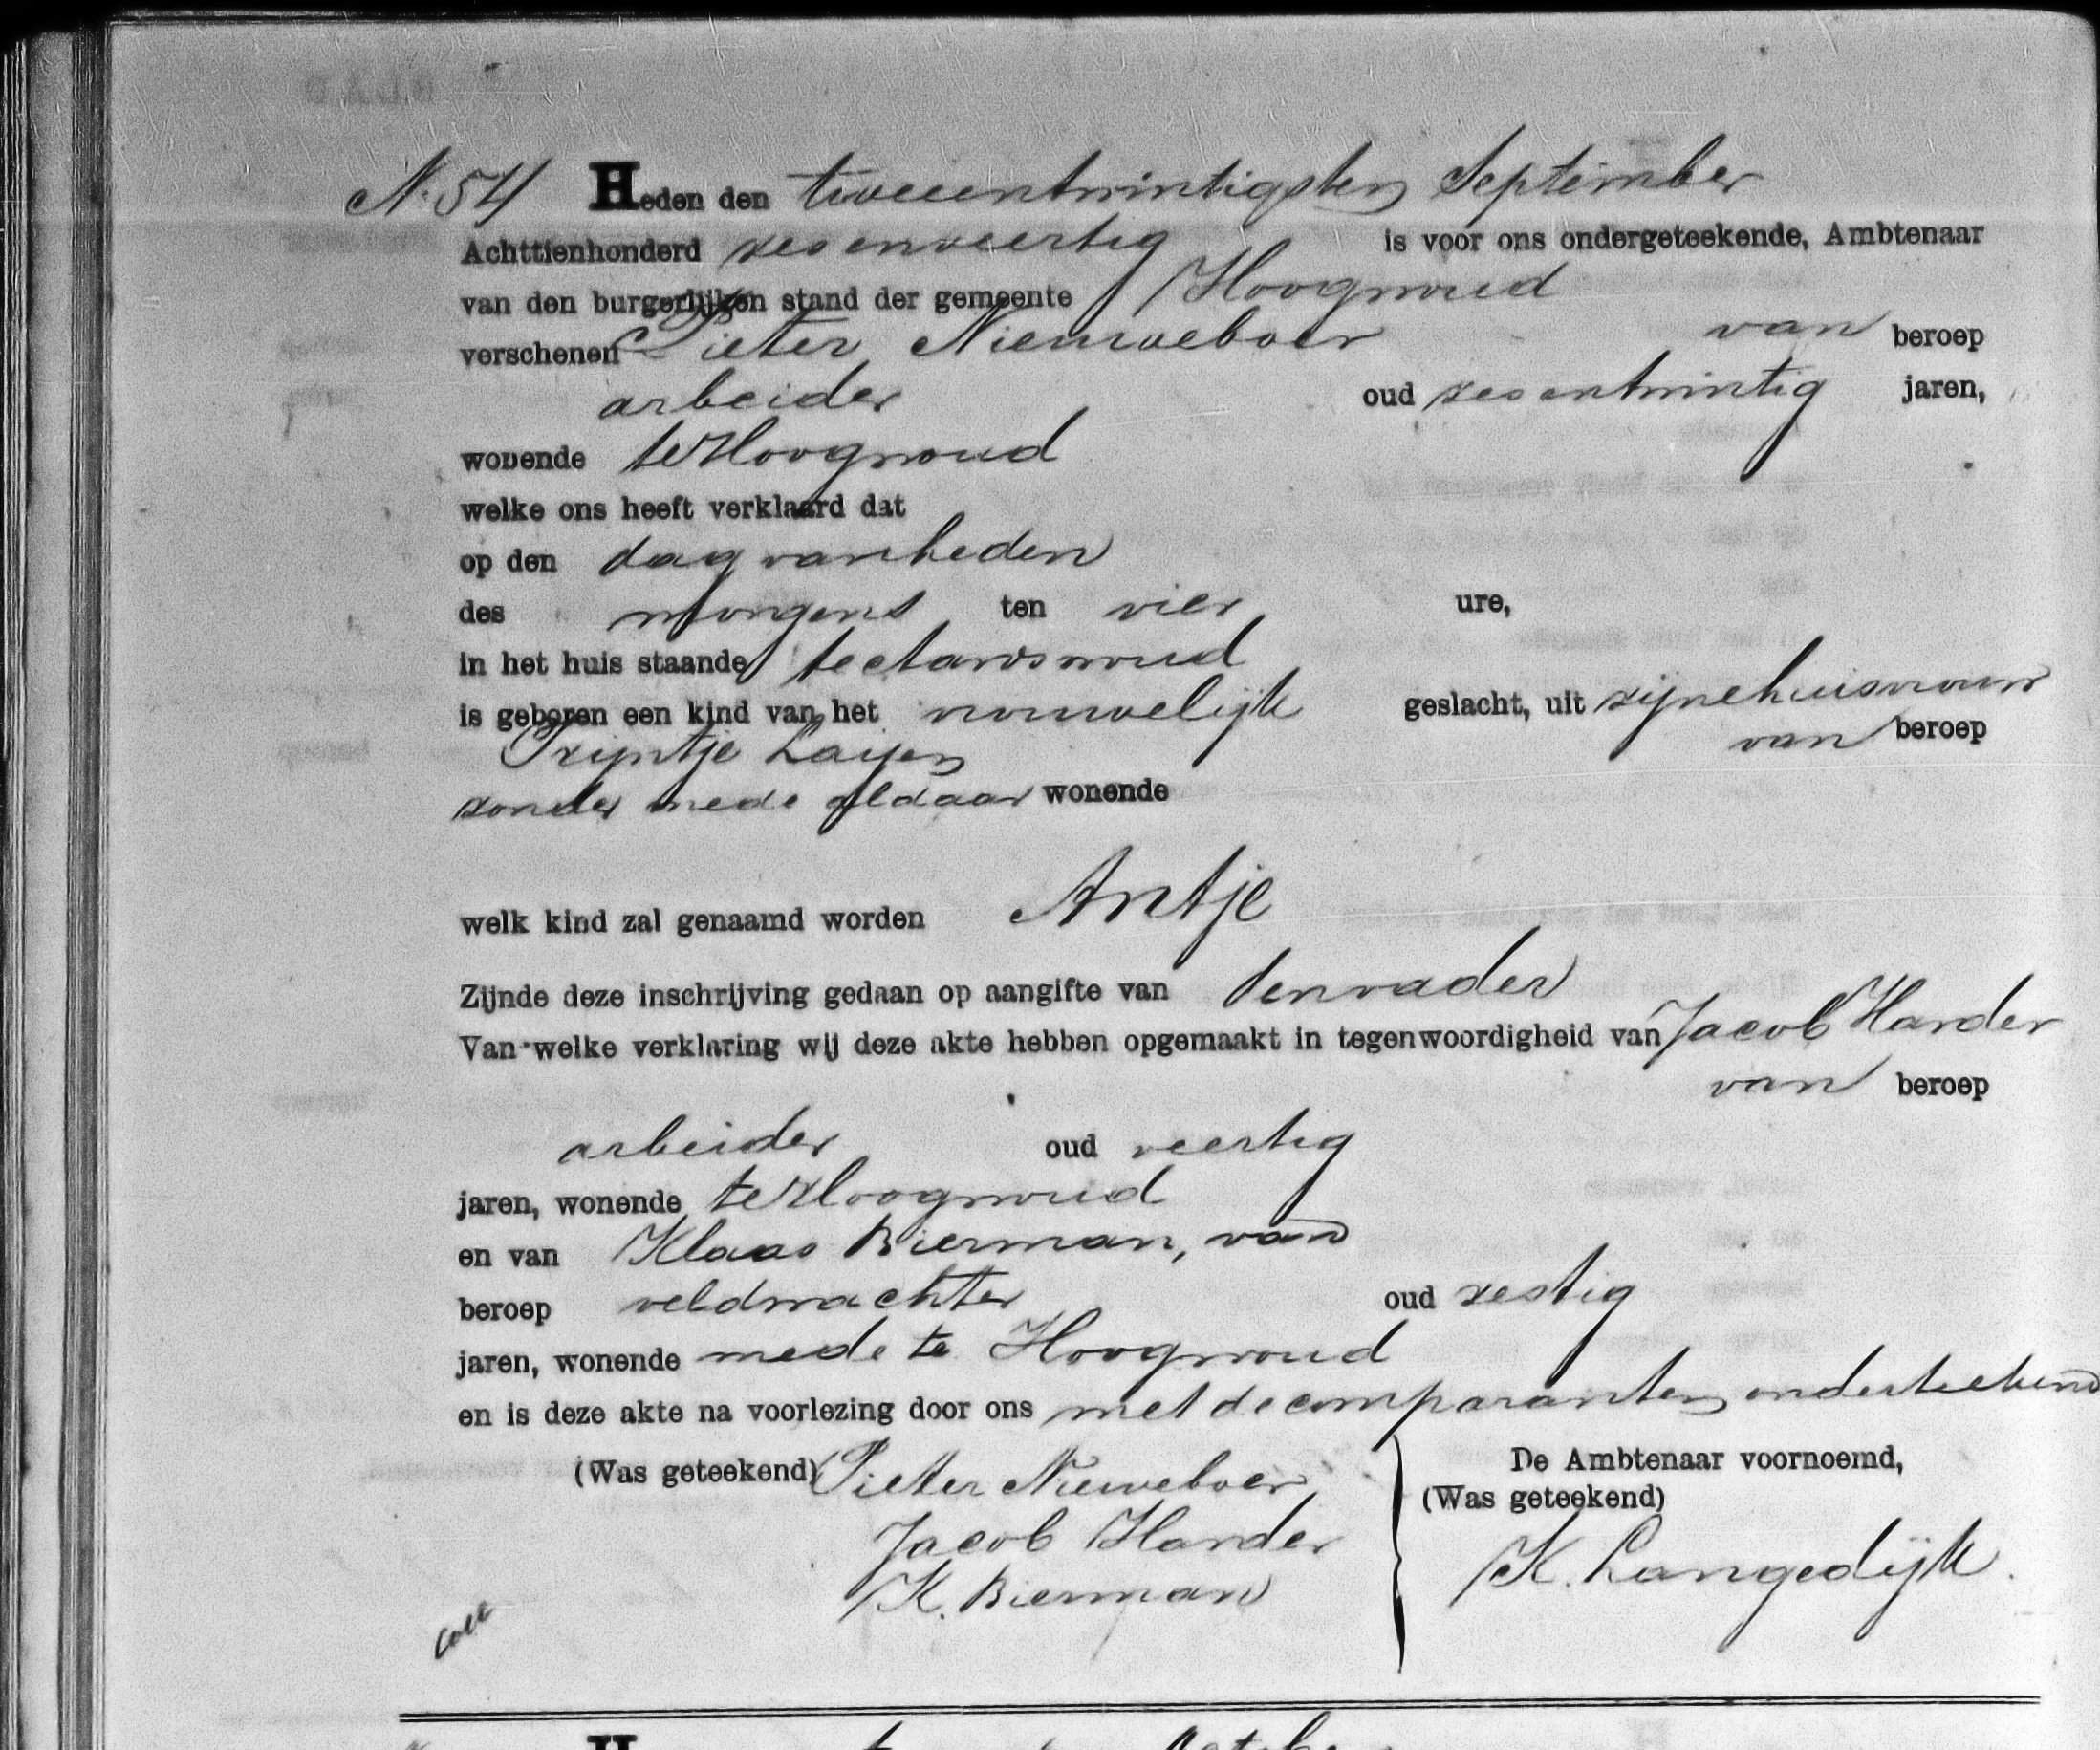 N. 54 Heden den tweeentwintigsten September
Achttienhonderd zesenveertig is voor ons ondergeteekende, Ambtenaar
van den burgerlijken stand der gemeente Hoogwoud
verschenen Pieter Nieuweboer van beroep
arbeider oud zesentwintig jaren,
wonende te Hoogwoud
welke ons heeft verklaard dat
op den dag van heden
des morgens ten vier ure,
in het huis staande te Aartswoud
is geboren een kind van het vrouwelijk geslacht, uit zijne huisvrouw
Trijntje Laijen van beroep
zonder mede aldaar wonende
welk kind zal genaamd worden Antje
Zijnde deze inschrijving gedaan op aangifte van den vader
Van welke verklaring wij deze akte hebben opgemaakt in tegenwoordigheid van Jacob Harder
van beroep
arbeider oud veertig
jaren, wonende te Hoogwoud
en van Klaas Bierman, van
beroep veldwachter oud zestig
jaren, wonende mede te Hoogwoud
en is deze akte na voorlezing door ons met de comparanten onderteekend
(Was geteekend) Pieter Nieuweboer
Jacob Harder
K. Bierman
De Ambtenaar voornoemd,
(Was geteekend)
K. Langedijk.